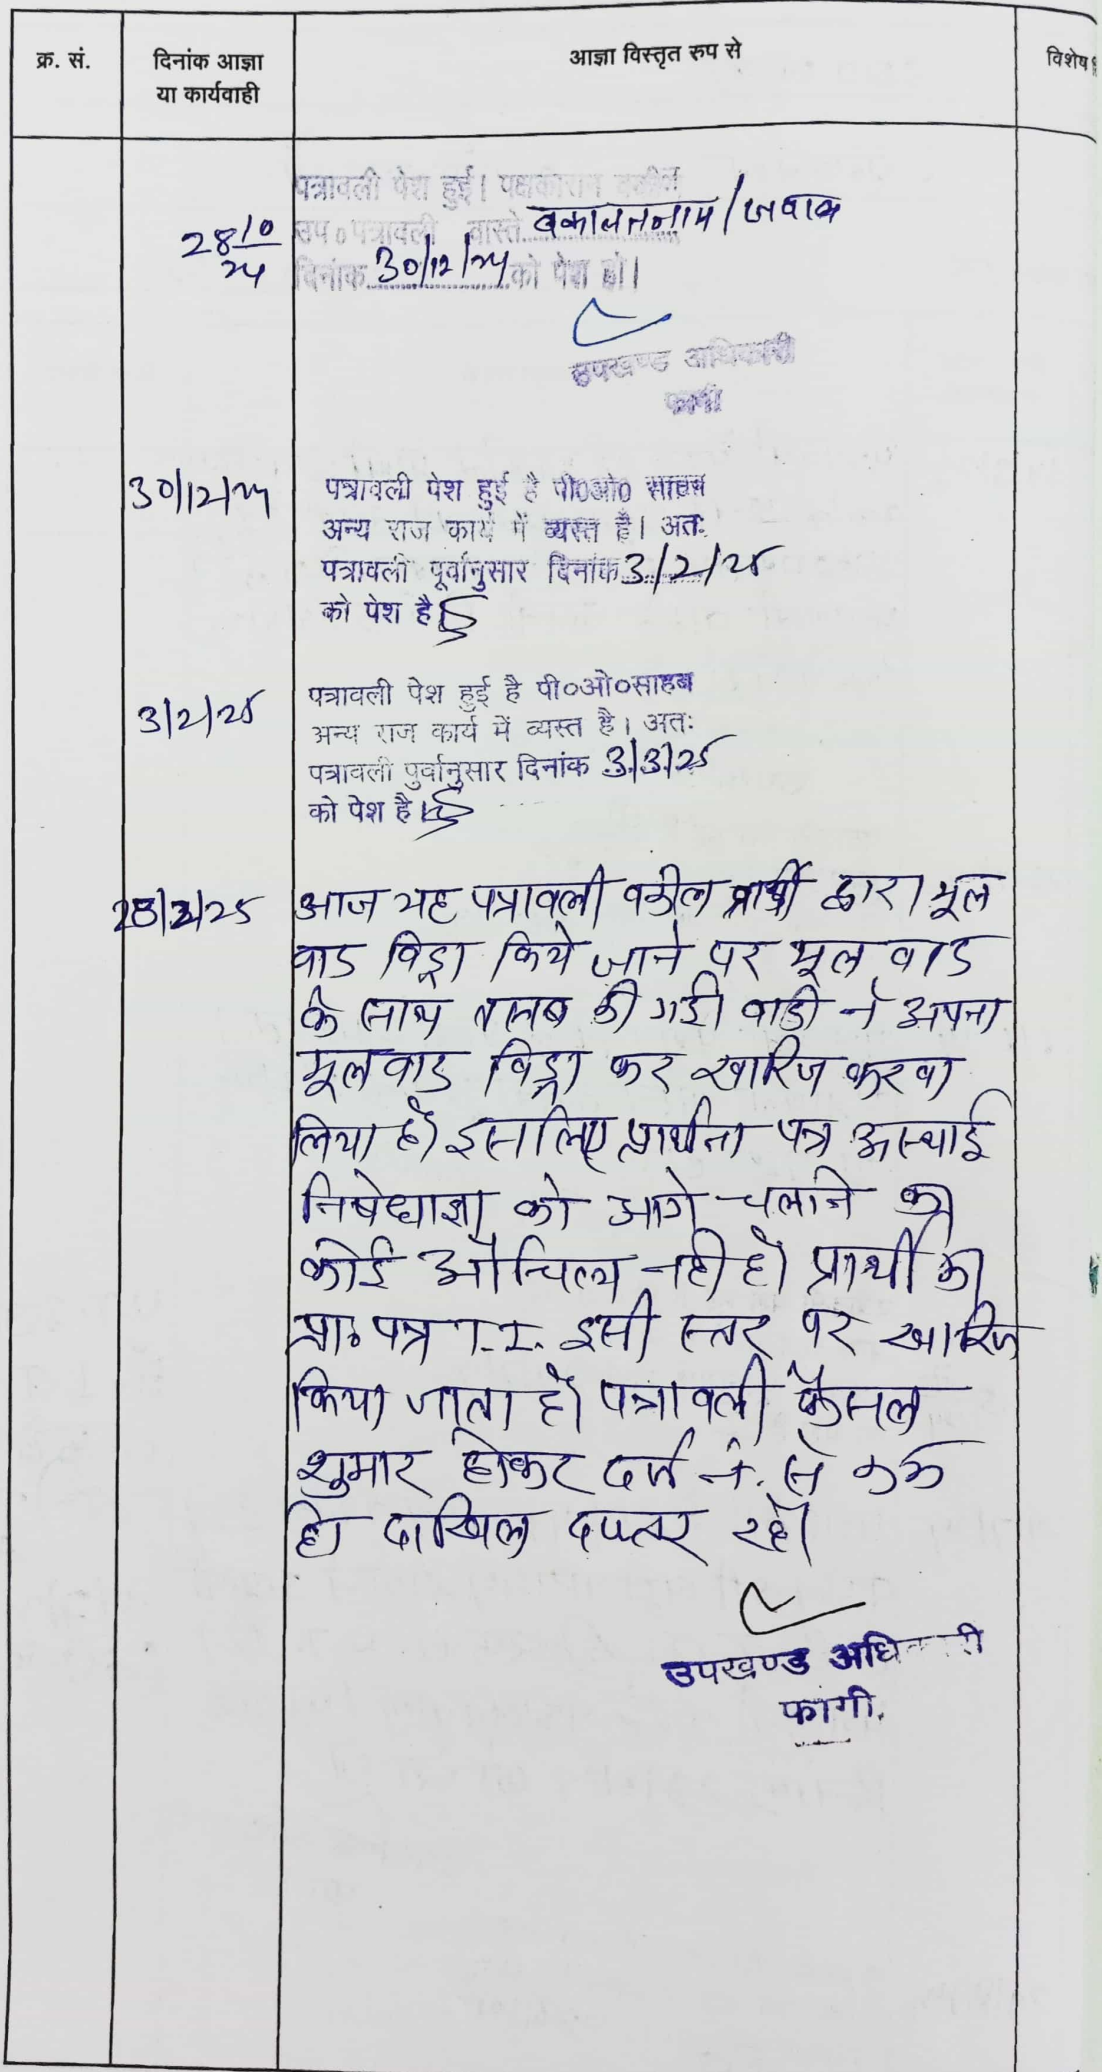 क्र. सं.
दिनांक आज्ञा
या कार्यवाही
आज्ञा विस्तृत रुप से
विशेष
पत्रावली पेश हुई। पक्षकारान वकील
उप० पत्रावली वास्ते वकालतनामा/जवाब
28/10/24
दिनांक 30/12/24 को पेश हो।
उपखण्ड अधिकारी
फागी
30/12/24
पत्रावली पेश हुई है पी०ओ० साहब
अन्य राज कार्य में व्यस्त है। अतः
पत्रावली पूर्वानुसार दिनांक 3/2/25
को पेश है।
3/2/25
पत्रावली पेश हुई है पी०ओ०साहब
अन्य राज कार्य में व्यस्त है। अतः
पत्रावली पुर्वानुसार दिनांक 3/3/25
को पेश है।
28/2/25
आज यह पत्रावली वकील प्रार्थी द्वारा मूल
वाद विड्रा किये जाने पर मूल वाद
के साथ तलब की गई। वादी ने अपना
मूल वाद विड्रा कर खारिज करवा
लिया है। इसलिए प्रार्थना पत्र अस्थाई
निषेधाज्ञा को आगे चलाने का
कोई औचित्य नही है। प्रार्थी का
प्रा० पत्र T.I. इसी स्तर पर खारिज
किया जाता है। पत्रावली फैसल
शुमार होकर दर्ज नं. से कम
हो दाखिल दफ्तर रहे।
उपखण्ड अधिकारी
फागी